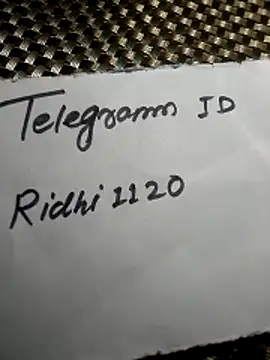 Telegramm ID
Ridhi 1120